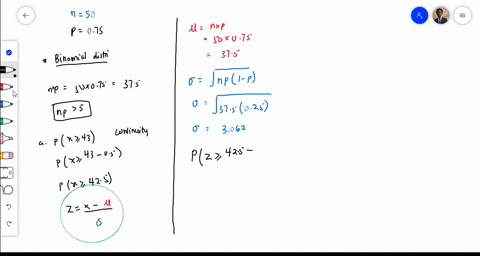 n = 50
p = 0.75
* Binomial distri
np = 50 x 0.75 = 37.5
np > 5
a. p(x ≥ 43) continuity
p(x ≥ 43 - 0.5)
p(x ≥ 42.5)
z = x - μ / σ
μ = n x p
= 50 x 0.75
= 37.5
σ = √np(1-p)
σ = √37.5(0.25)
σ = 3.062
P(z ≥ 42.5 -